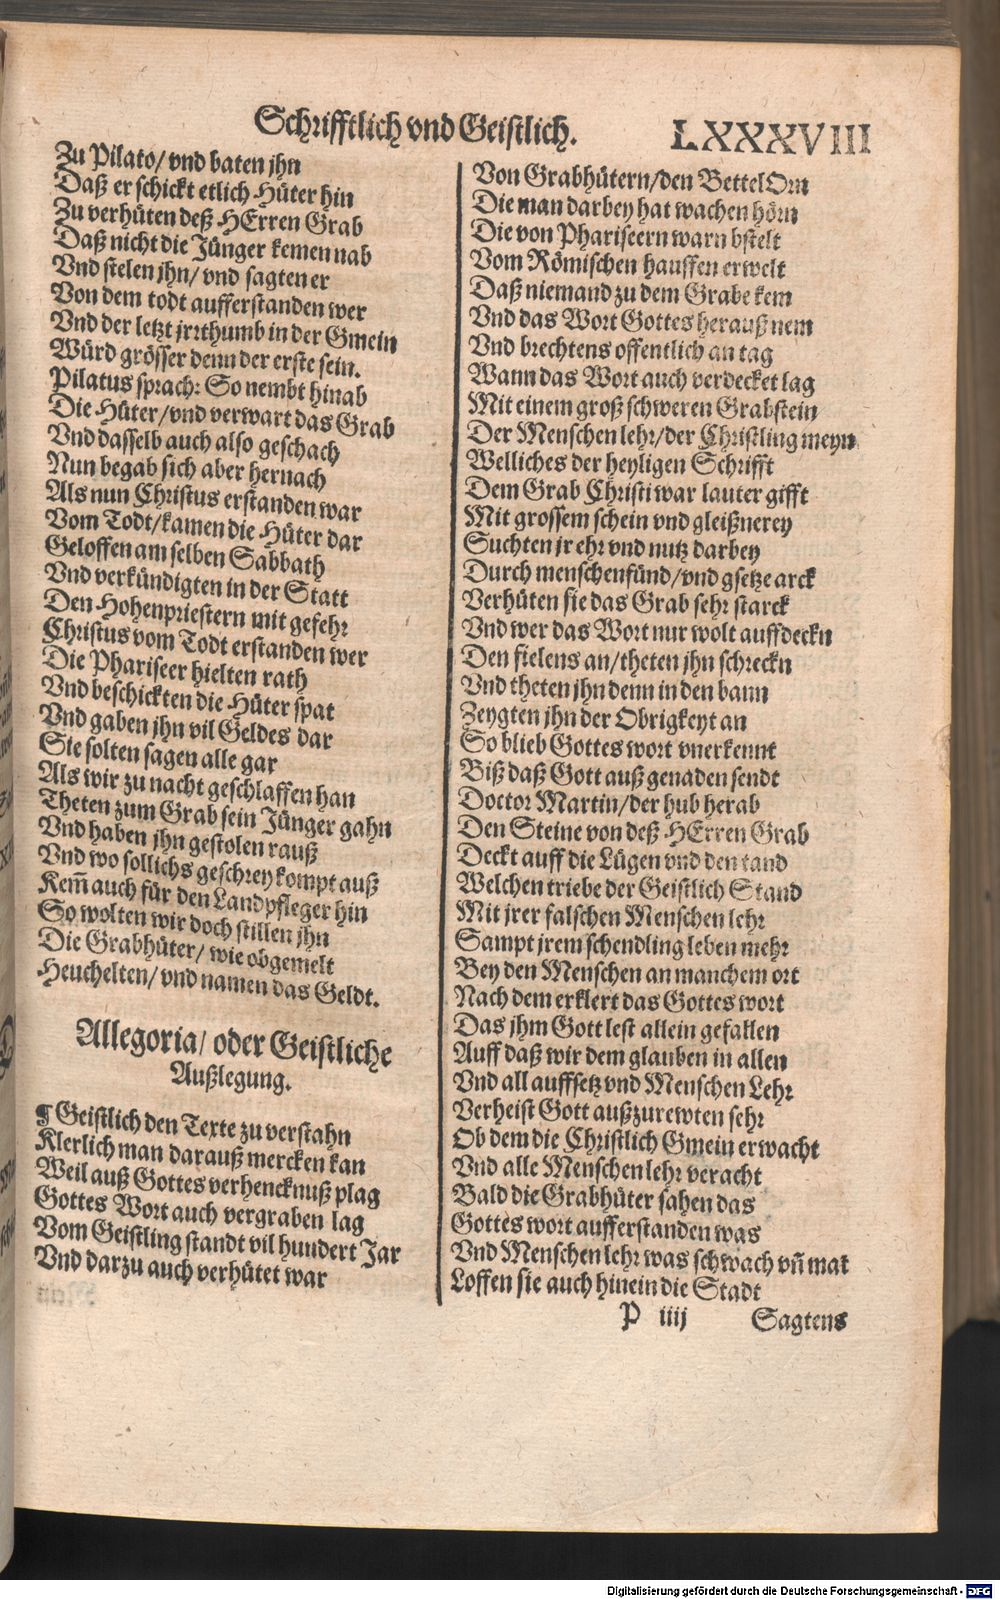 Schrifftlich vnd Geistlich.
LXXXVIII
Zu Pilato/ vnd baten jhn
Daß er schickt etlich Hüter hin
Zu verhüten deß HErren Grab
Daß nicht die Jünger kemen nab
Vnd stelen jhn/ vnd sagten er
Von dem todt aufferstanden wer
Vnd der letzt jrrthumb in der Gmein
Würd grösser denn der erste sein.
Pilatus sprach: So nembt hinab
Die Hüter/ vnd verwart das Grab
Vnd dasselb auch also geschach
Nun begab sich aber hernach
Als nun Christus erstanden war
Vom Todt/ kamen die Hüter dar
Geloffen am selben Sabbath
Vnd verkündigten in der Statt
Den Hohenpriestern mit gefehr
Christus vom Todt erstanden wer
Die Phariseer hielten rath
Vnd beschickten die Hüter spat
Vnd gaben jhn vil Geldes dar
Sie solten sagen alle gar
Als wir zu nacht geschlaffen han
Theten zum Grab sein Jünger gahn
Vnd haben jhn gestolen rauß
Vnd wo sollichs geschrey kompt auß
Kem̃ auch für den Landpfleger hin
So wolten wir doch stillen jhn
Die Grabhüter/ wie obgemelt
Heuchelten/ vnd namen das Geldt.
Allegoria/ oder Geistliche
Außlegung.
¶ Geistlich den Texte zu verstahn
Klerlich man darauß mercken kan
Weil auß Gottes verhencknuß plag
Gottes Wort auch vergraben lag
Vom Geistling standt vil hundert Jar
Vnd darzu auch verhütet war
Von Grabhütern/ den Bettel Orn
Die man darbey hat wachen hörn
Die von Phariseern warn bstelt
Vom Römischen hauffen erwelt
Daß niemand zu dem Grabe kem
Vnd das Wort Gottes herauß nem
Vnd brechtens offentlich an tag
Wann das Wort auch verdecket lag
Mit einem groß schweren Grabstein
Der Menschen lehr/ der Christling meyn
Welliches der heyligen Schrifft
Dem Grab Christi war lauter gifft
Mit grossem schein vnd gleißnerey
Suchten jr ehr vnd nutz darbey
Durch menschenfünd/ vnd gsetze arck
Verhüten sie das Grab sehr starck
Vnd wer das Wort nur wolt auffdeckn
Den fielens an/ theten jhn schreckn
Vnd theten jhn denn in den bann
Zeygten jhn der Obrigkeyt an
So blieb Gottes wort vnerkennt
Biß daß Gott auß genaden sendt
Doctor Martin/ der hub herab
Den Steine von deß HErren Grab
Deckt auff die Lügen vnd den tand
Welchen triebe der Geistlich Stand
Mit jrer falschen Menschen lehr
Sampt jrem schendling leben mehr
Bey den Menschen an manchem ort
Nach dem erklert das Gottes wort
Das jhm Gott lest allein gefallen
Auff daß wir dem glauben in allen
Vnd all auffsetz vnd Menschen Lehr
Verheist Gott außzurewten sehr
Ob dem die Christlich Gmein erwacht
Vnd alle Menschen lehr veracht
Bald die Grabhüter sahen das
Gottes wort aufferstanden was
Vnd Menschen lehr was schwach vñ mat
Loffen sie auch hinein die Stadt
P iiij
Sagtens
Digitalisierung gefördert durch die Deutsche Forschungsgemeinschaft - DFG